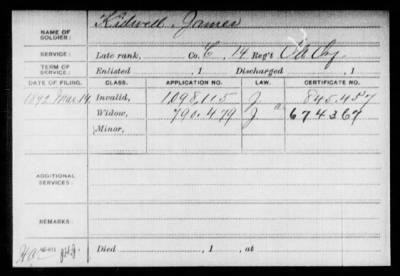 NAME OF SOLDIER: Kidwell, James
SERVICE: Late rank, Co. C, 14 Reg't
TERM OF SERVICE: Enlisted , 1 Discharged , 1
DATE OF FILING. CLASS. APPLICATION NO. LAW. CERTIFICATE NO.
1892 Mar. 14 Invalid, 1,098,115 J 845.457
Widow, 790.479 J 674367
Minor,
ADDITIONAL SERVICES:
REMARKS:
Died , 1 , at